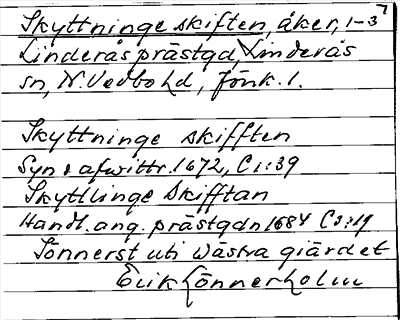 Skyttninge skiften, åker, 1-3
Linderås prästgd, Linderås
sn, N. Vedbo hd, Jönk. l.
Skyttninge skifften
Syn & afwittr. 1672, C1:39
Skyttlinge Skifftan
Handl. ang. prästgdn 1684 C2:19
Sönnerst uti wästra giärdet
Erik Lönnerholm